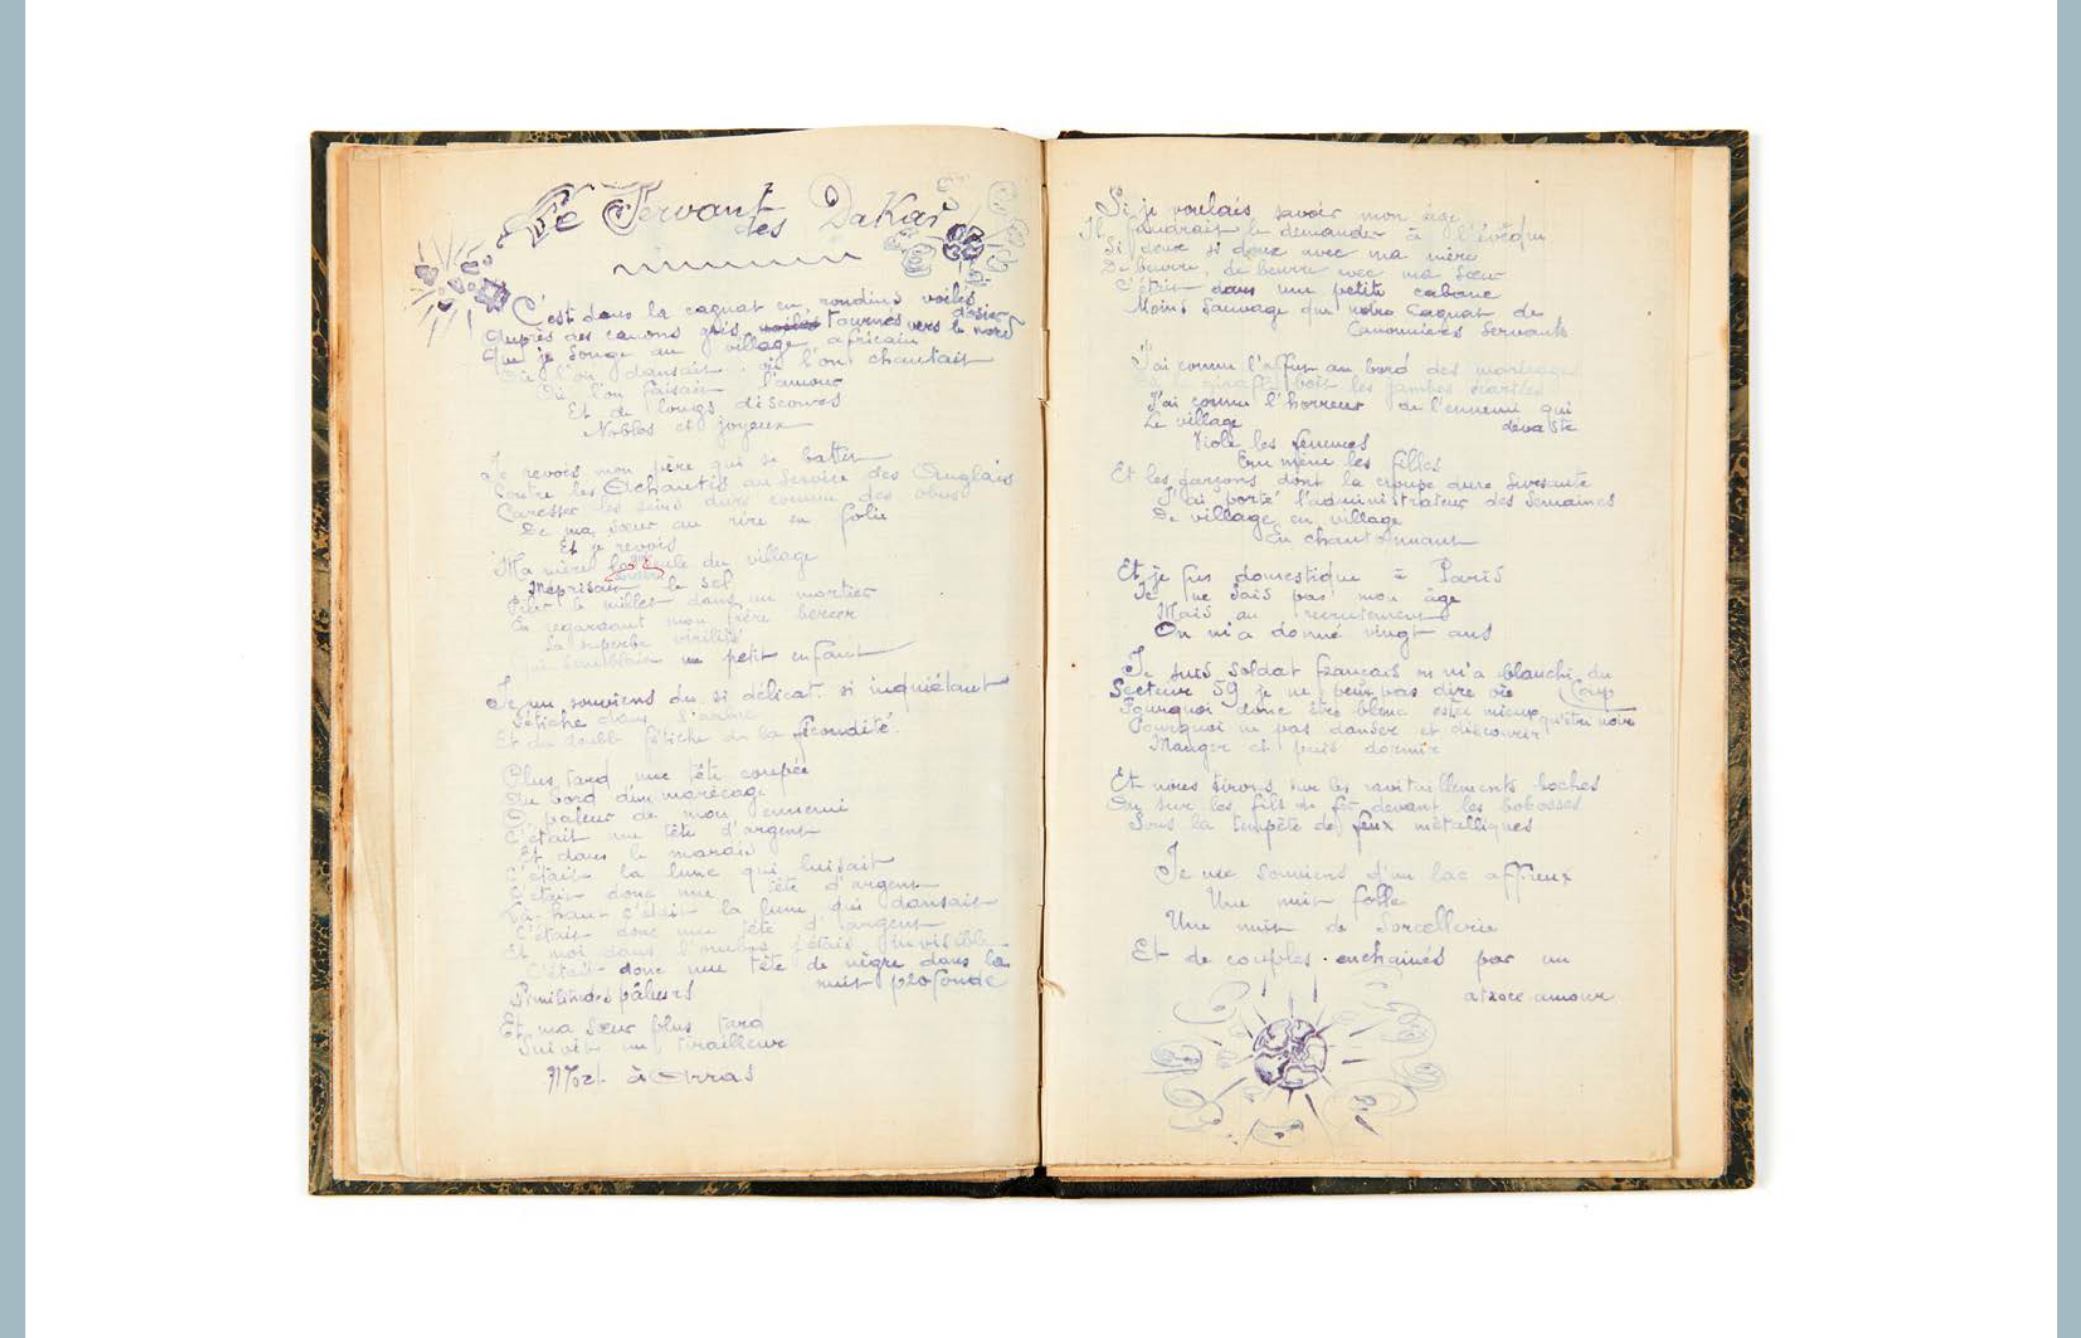 Le Servant
des Dakar
C'est dans la cagnat en rondins voilés
d'osier
Auprès des canons gris voilés tournés vers le nord
Que je songe au village africain
Où l'on dansait où l'on chantait
Où l'on faisait l'amour
Et de longs discours
Nobles et joyeux
Je revois mon père qui se battit
Contre les Achantis au service des Anglais
Caresser les seins durs comme des obus
De ma sœur au rire en folie
Et je revois
Ma mère du village
Méprisait le sel
Piler le millet dans un mortier
En regardant mon frère bercer
La superbe virilité
Qui semblait un petit enfant
Je me souviens du si délicat si inquiétant
Fétiche dans l'arbre
Et du double fétiche de la fécondité
Plus tard une tête coupée
Au bord d'un marécage
O pâleur de mon ennemi
C'était une tête d'argent
Et dans le marais
C'était la lune qui luisait
C'était donc une tête d'argent
Là-haut c'était la lune qui dansait
C'était donc une tête d'argent
Et moi dans l'ombre j'étais invisible
C'était donc une tête de nègre dans la
nuit profonde
Similitudes pâleurs
Et ma sœur plus tard
Suivit un tirailleur
Mort à Arras
Si je voulais savoir mon âge
Il faudrait le demander à l'évêque
Si doux si doux avec ma mère
De beurre, de beurre avec ma sœur
C'était dans une petite cabane
Moins sauvage que notre cagnat de
Canonniers Servants
J'ai connu l'affût au bord des marécages
Où la girafe boit les jambes écartées
J'ai connu l'horreur de l'ennemi qui
Le village dévaste
Viole les femmes
Emmène les filles
Et les garçons dont la croupe dure sursaute
J'ai porté l'administrateur des semaines
De village en village
En chantonnant
Et je fus domestique à Paris
Je ne sais pas mon âge
Mais au recrutement
On m'a donné vingt ans
Je suis soldat français on m'a blanchi du
coup
Secteur 59 je ne peux pas dire où
Pourquoi donc être blanc est-ce mieux qu'être noir
Pourquoi ne pas danser et discourir
Manger et puis dormir
Et nous tirons sur les ravitaillements boches
Ou sur les fils de fer devant les bobosses
Sous la tempête de feux métalliques
Je me souviens d'un lac affreux
Une nuit folle
Une nuit de Sorcellerie
Et de couples enchainés par un
atroce amour